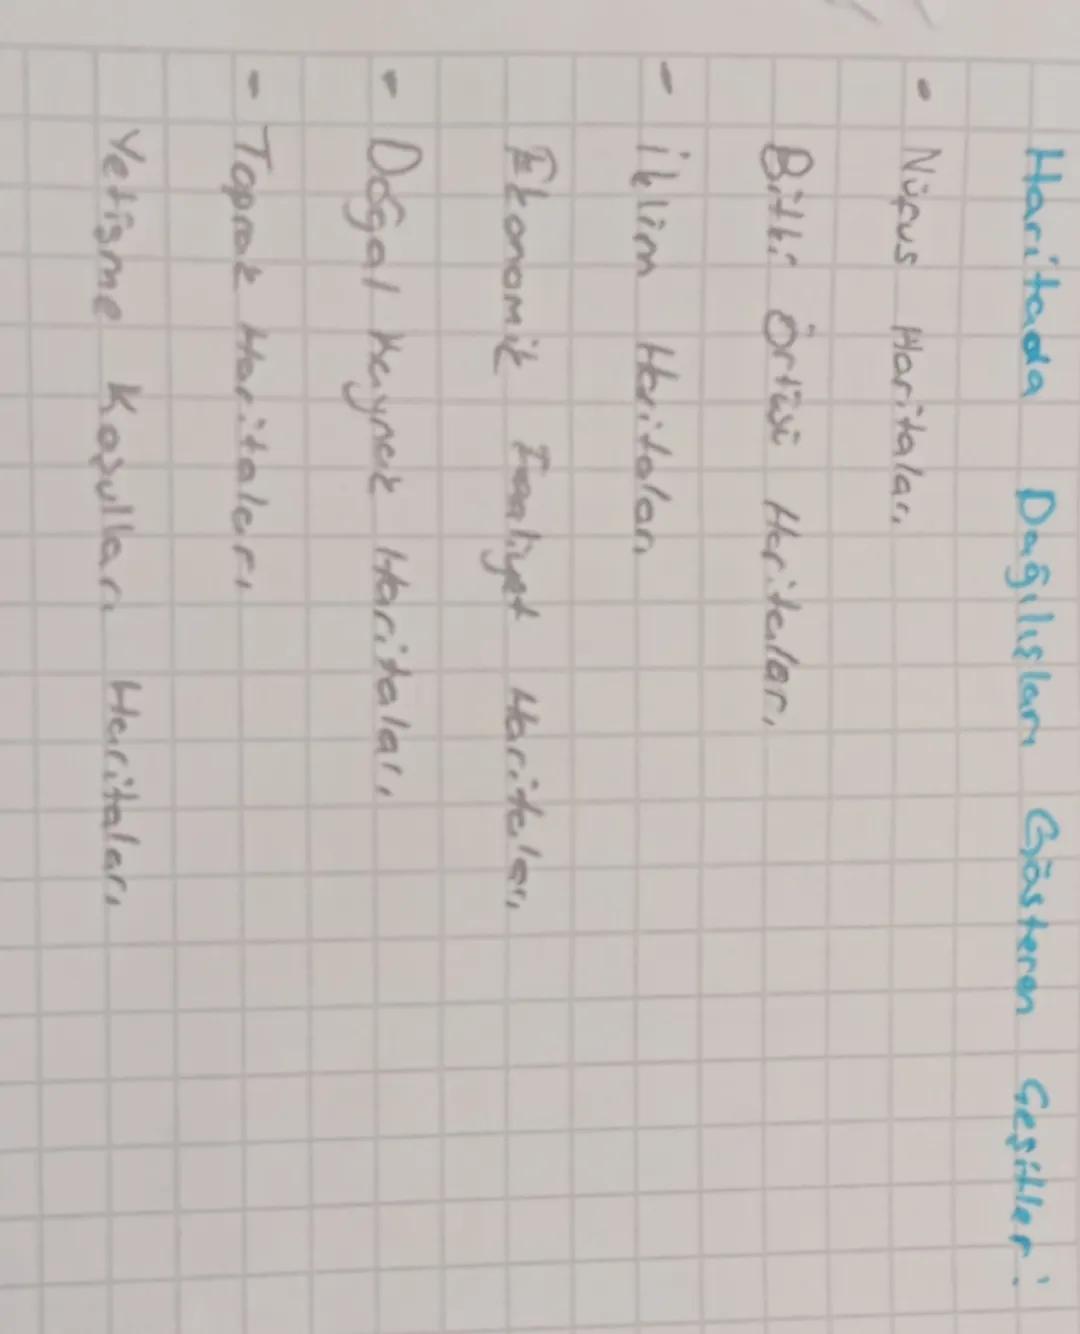 Haritada Dağılışları Gösteren Çeşitler:
- Nüfus Haritaları
Bitki Örtüsü Haritaları
- İklim Haritaları
Ekonomik Faaliyet Haritaları
- Doğal Kaynak Haritaları
- Toprak Haritaları
Yetişme Koşulları Haritaları